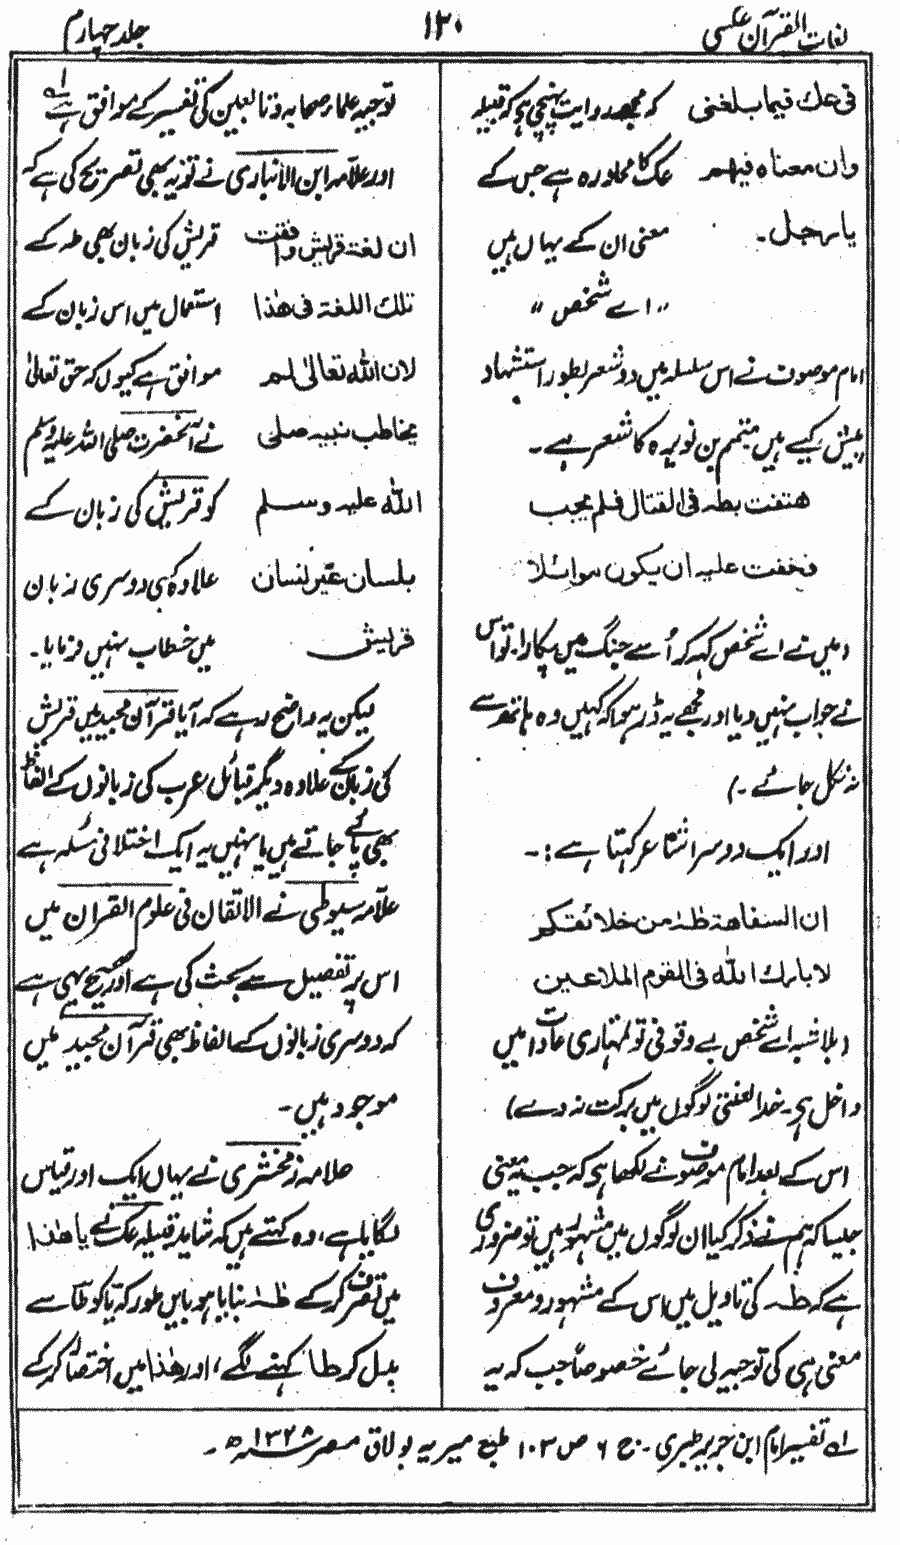 لغات القرآن عکسی
۱۳۰
جلد چہارم
فی عك فیماب لغنی کہ مجھے روایت پہنچی ہے کہ قبیلہ
وان معناہ فیھم عک کا محاورہ ہے جس کے
یا رجل۔ معنی ان کے یہاں ہیں
"اے شخص"
امام موصوف نے اس سلسلہ میں دو شعر بطور استشہاد
پیش کیے ہیں متمم بن نویرہ کا شعر ہے۔
ھتفت بطٰہ فی القتال فلم یجب
فخفت علیہ ان یکون موائلا
(میں نے اے شخص کہہ کر اُسے جنگ میں پکارا۔ تو اس
نے جواب نہیں دیا اور مجھے یہ ڈر ہوا کہ کہیں وہ ہاتھ سے
نہ نکل جائے۔)
اور ایک دوسرا شاعر کہتا ہے:۔
ان السفاھة طٰہٰ من خلائقکم
لا بارك اللہ فی القوم الملاعین
(بلا شبہ اے شخص بے وقوفی تو تمہاری عادات میں
داخل ہے۔ خدا لعنتی لوگوں میں برکت نہ دے)
اس کے بعد امام موصوف نے لکھا ہے کہ جب یہ معنی
جیسا کہ ہم نے ذکر کیا ان لوگوں میں مشہور ہیں تو ضروری
ہے کہ طٰہٰ کی تاویل میں اس کے مشہور و معروف
معنی ہی کی توجیہ لی جائے خصوصاً جب کہ یہ
توجیہ علماء صحابہ و تابعین کی تفسیر کے موافق ہے لے
اور علّامہ ابن الانباری نے تو یہ بھی تصریح کی ہے کہ
ان لغة قریش وافقت قریش کی زبان بھی طٰہ کے
تلك اللغة فی ھٰذا استعمال میں اس زبان کے
لان اللہ تعالیٰ لم موافق ہے کیوں کہ حق تعالیٰ
یخاطب نبیہ صلی نے آنحضرت صلی اللہ علیہ وسلم
اللہ علیہ وسلم کو قریش کی زبان کے
بلسان غیر لسان علاوہ کسی دوسری زبان
قریش میں خطاب نہیں فرمایا۔
لیکن یہ واضح رہے کہ آیا قرآن مجید میں قریش
کی زبان کے علاوہ دیگر قبائلِ عرب کی زبانوں کے الفاظ
بھی پائے جاتے ہیں یا نہیں یہ ایک اختلافی مسئلہ ہے
علّامہ سیوطی نے الاتقان فی علوم القران میں
اس پر تفصیل سے بحث کی ہے اور صحیح یہی ہے
کہ دوسری زبانوں کے الفاظ بھی قرآن مجید میں
موجود ہیں۔
علامہ زمخشری نے یہاں ایک اور قیاس
لگایا ہے، وہ کہتے ہیں کہ شاید قبیلہ عک نے یا ھٰذا
میں تصرف کر کے طٰہٰ بنایا ہو بایں طور کہ یا کو طا سے
بدل کر طا کہنے لگے، اور ھٰذا میں اختصار کر کے
لے تفسیر امام ابن جریر طبری۔ ج ۶ ص ۱۰۳ طبع میریہ بولاق مصر ۱۳۲۸ھ۔